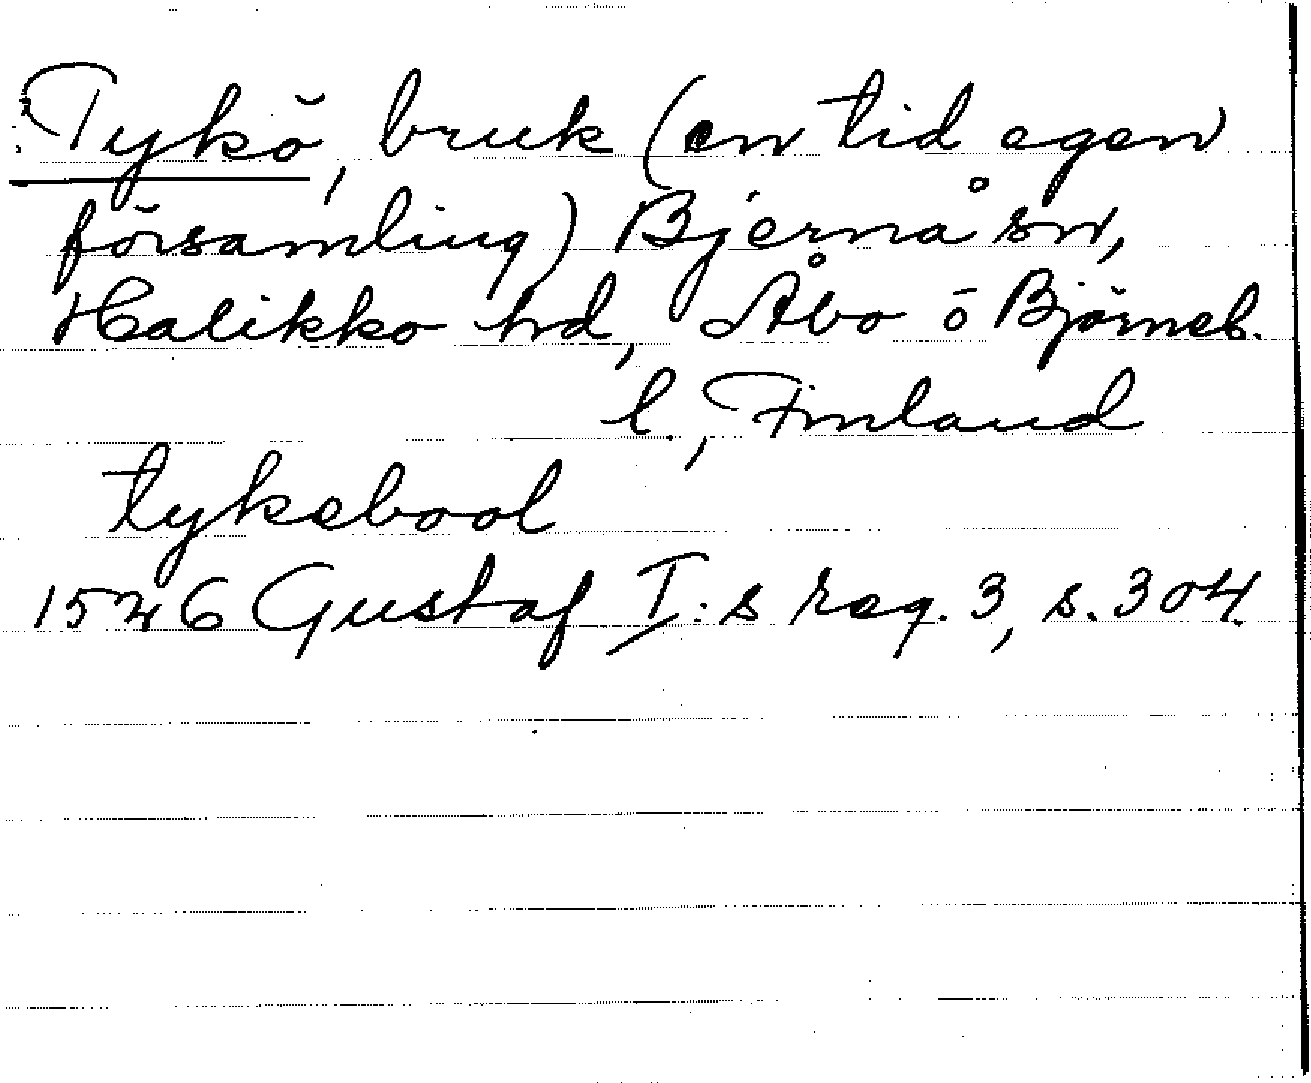 Tykö, bruk (en tid egen
församling) Bjernå sn,
Halikko hd, Åbo o Björneb.
l, Finland
tykebool
1526 Gustaf I:s reg. 3, s. 304.